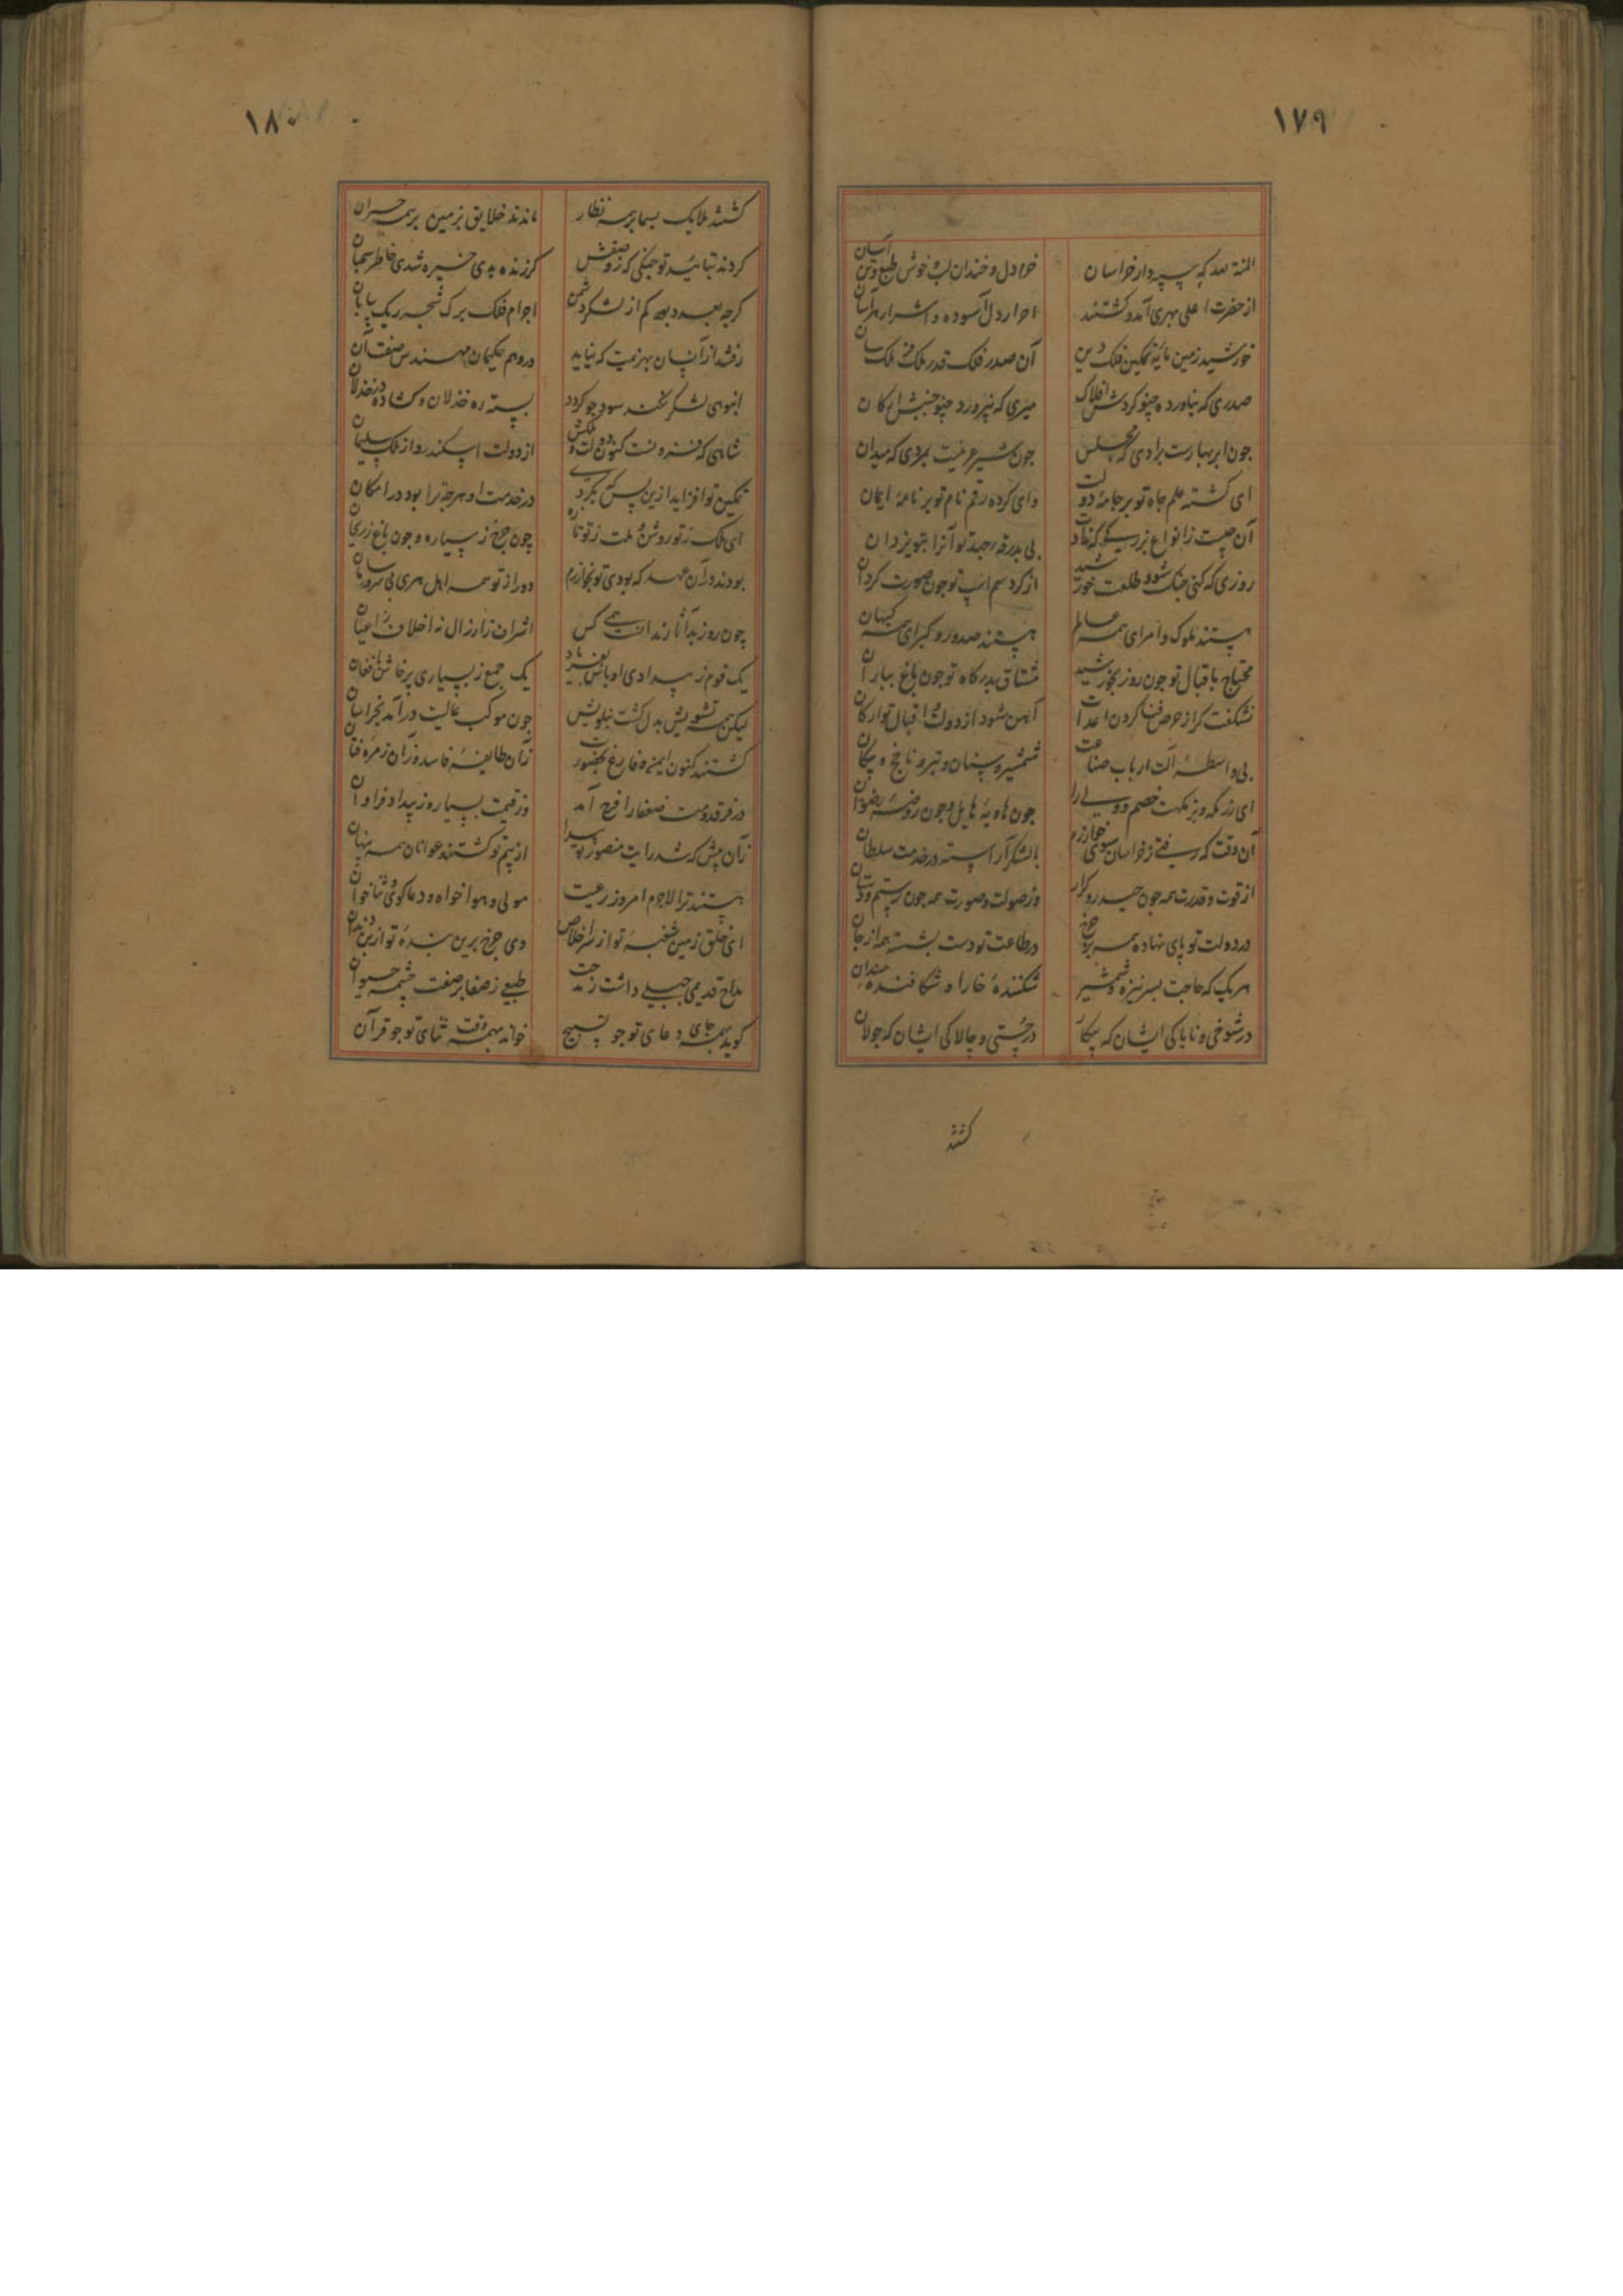 ۱۷۹
المنة لله که سپهدار خراسان
خرم دل و خندان لب و خوش طبع و تن آسان
از حضرت اعلی بهری آمد و کشتند
احرار دل آسوده و اشرار هراسان
خورشید زمین مایهٔ تمکین فلک دین
آن صدر فلک قدر ملک فر ملک سان
صدری که نیاورد چنو کردش افلاک
میری که نپرورد چنو جنبش ارکان
جون ابر بهارست برادی که مجلس
جون شیر عرینست بمردی که میدان
ای کشته علم جاه تو بر جامهٔ دولت
وای کرده رقم نام تو بر نامهٔ ایمان
آن چیست ز انواع بزرکی که نداد
بی بدرقهٔ رحبة تو آنرا بتو یزدان
روزی که کنی جنک شود طلعت خورشید
از کرد سم اسب تو جون صورت کردان
هستند ملوک و امرای همه عالم
هستند صدور و کبرای همه کیهان
محتاج باقبال تو جون روز بخورشید
مشتاق بدرکاه تو جون باغ بباران
نشکفت کر از حرص فنا کردن اعدات
آهن شود از دولت و اقبال تو ارکان
بی واسطهٔ آلت ارباب صناعت
شمشیر و سنان و تبر و ناجخ و پیکان
ای رزمکه و بزمکهت خصم و ولی را
جون هاویهٔ هایل و جون روضهٔ رضوان
آن وقت که رفتی ز خراسان سوی خوارزم
با لشکر آراسته در خدمت سلطان
از قوت و قدرت همه جون حیدر کرار
وز صولت و صورت همه جون رستم دستان
در دولت تو پای نهاده همه بر جرخ
در طاعت تو دست بشسته همه از جان
هر یک که حاجت بسر نیزه و شمشیر
شکنندهٔ خارا و شکافندهٔ سندان
در شوخی و ناباکی ایشان که پیکار
در چستی و چالاکی ایشان که جولان
کشتند
۱۸۰
کشتند ملایک بسما بر همه نظار
ماندند خلایق بزمین بر همه حیران
کردند بتائید تو جنکی که ز وصفش
کر زنده بدی خیره شدی خاطر سحبان
کرجه بعدد بود کم از لشکر دشمن
اجرام فلک برک شجر ریک بیابان
رفتند از آنسان بهزیمت که نیاید
در وهم حکیمان مهندس صفت آن
انبوهی لشکر نکند سود جو کردد
بسته ره خذلان و کشاده در خذلان
شاهی که فزونست کنون دولت و ملکش
از دولت اسکندر و از ملک سلیمان
تمکین تو افزاید ازین پس که بکردی
در خدمت او هرجه ترا بود در امکان
ای ملک ز تو روشن و ملت ز تو تازه
چون جرخ ز سیاره و جون باغ ز ریحان
بودند در آن عهد که بودی تو بخوارزم
دور از تو همه اهل هری بی سر و سامان
چون روز بد آثار ندانست همی کس
اشراف ز ارذال نه اخلاف ز اعیان
یک قوم ز بیدادی اوباش بفریاد
یک جمع ز بسیاری پرخاش بافغان
لیکن همه تشویش بدل کشت بنکویش
جون موکب عالیت در آمد بخراسان
کشتند کنون ایمن و فارغ بحضورت
زان طایفهٔ فاسد وزان زمرهٔ فتان
در فر قدومت ضعفا را فرج آمد
وز قیمت بسیار و ز بیداد فراوان
زان پیش که شد رایت منصور تو پیدا
از بیم تو کشتند عوانان همه پنهان
هستند ترا لاجرم امروز رعیت
مولی و هواخواه و دعاکوی و ثناخوان
ای خلق زمین شغبهٔ تو از سر اخلاص
وی جرخ برین بندهٔ تو از بن دندان
مداح قدیمی جبلی داشت ز مدحت
طبعی ز صفا بر صفت چشمهٔ حیوان
کوید بهمه جای دعای تو جو تسبیح
خواند بهمه وقت ثنای تو جو قرآن